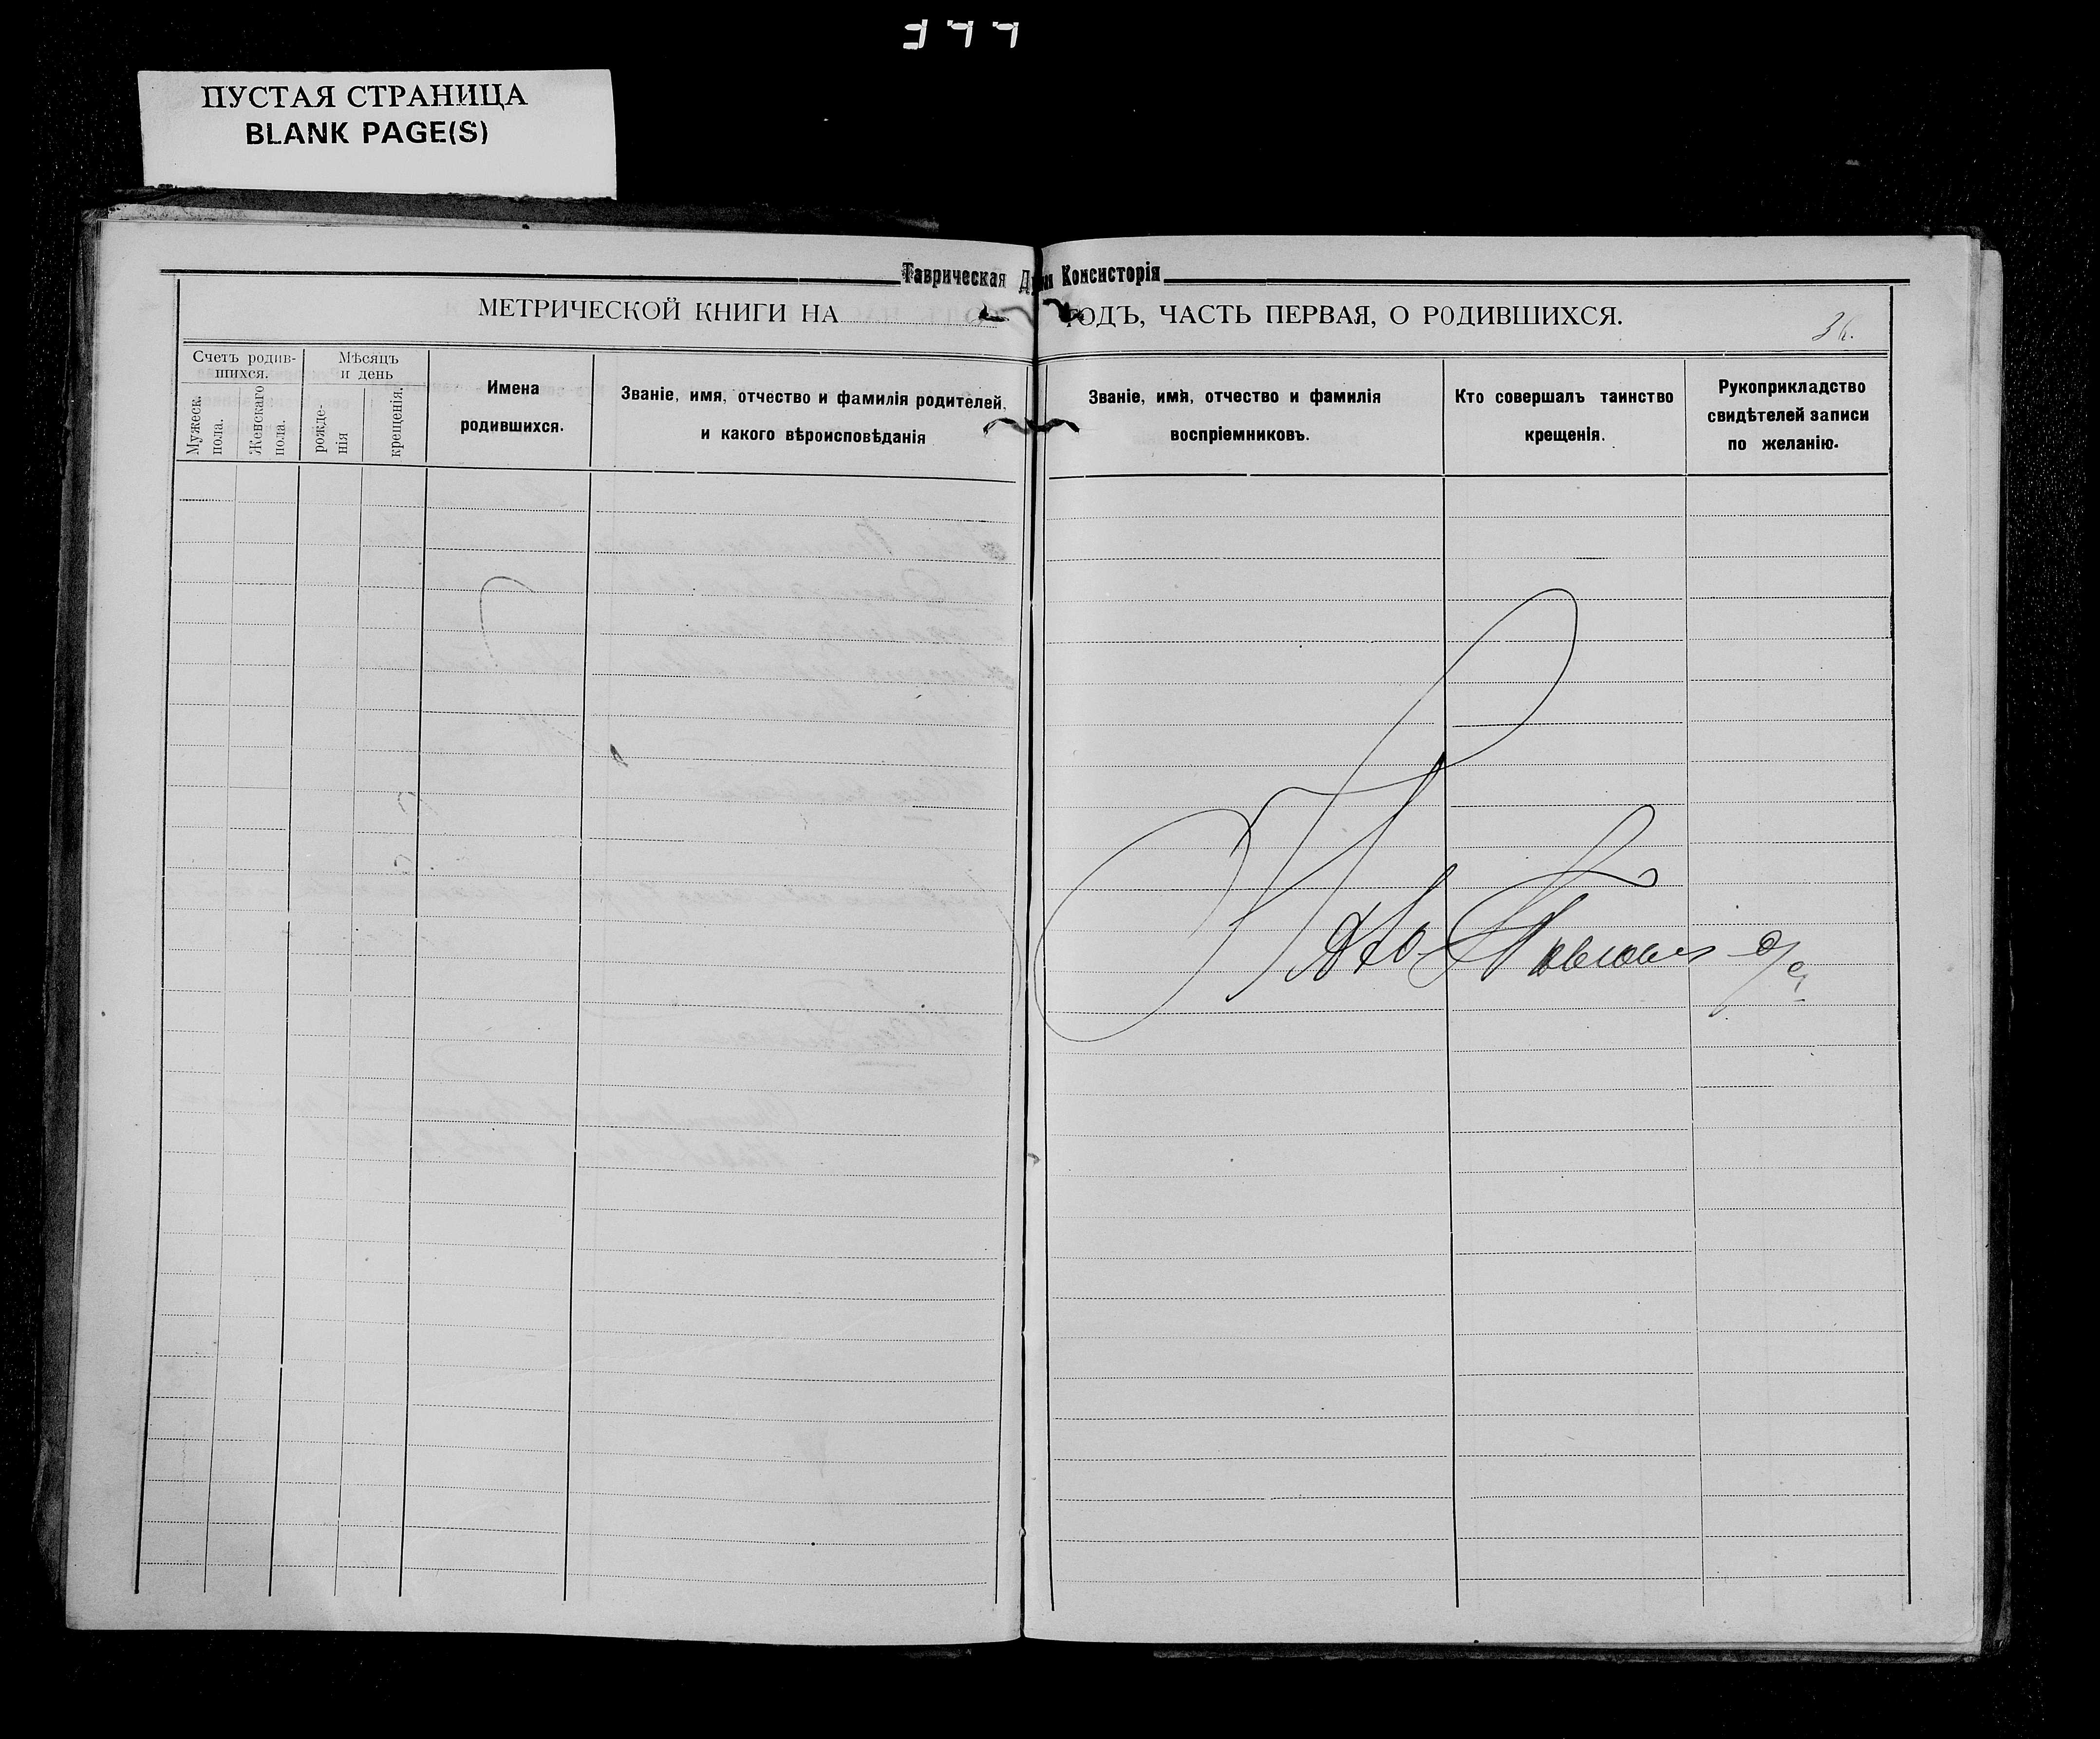 ПУСТАЯ СТРАНИЦА
BLANK PAGE(S)
Таврическая Д Консисторія
МЕТРИЧЕСКОЙ КНИГИ НА ГОДЪ, ЧАСТЬ ПЕРВАЯ, О РОДИВШИХСЯ.
Счетъ родив-
шихся.
Мужеск.
пола.
Женскаго
пола.
Мѣсяцъ
и день
рожде-
нія
крещенія.
Имена
родившихся.
Званіе, имя, отчество и фамилія родителей,
и какого вѣроисповѣданія
Званіе, имя, отчество и фамилія
воспріемниковъ.
Кто совершалъ таинство
крещенія.
Рукоприкладство
свидѣтелей записи
по желанію.